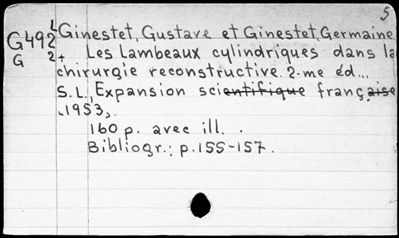 5
G492 L Ginestet, Gustave et Ginestet, Germaine
G 2 + Les Lambeaux cylindriques dans la
chirurgie reconstructive. 2-me éd...
S.L., Expansion scientifique française
1953,.
160 p. avec ill. .
Bibliogr.: p.155-157.